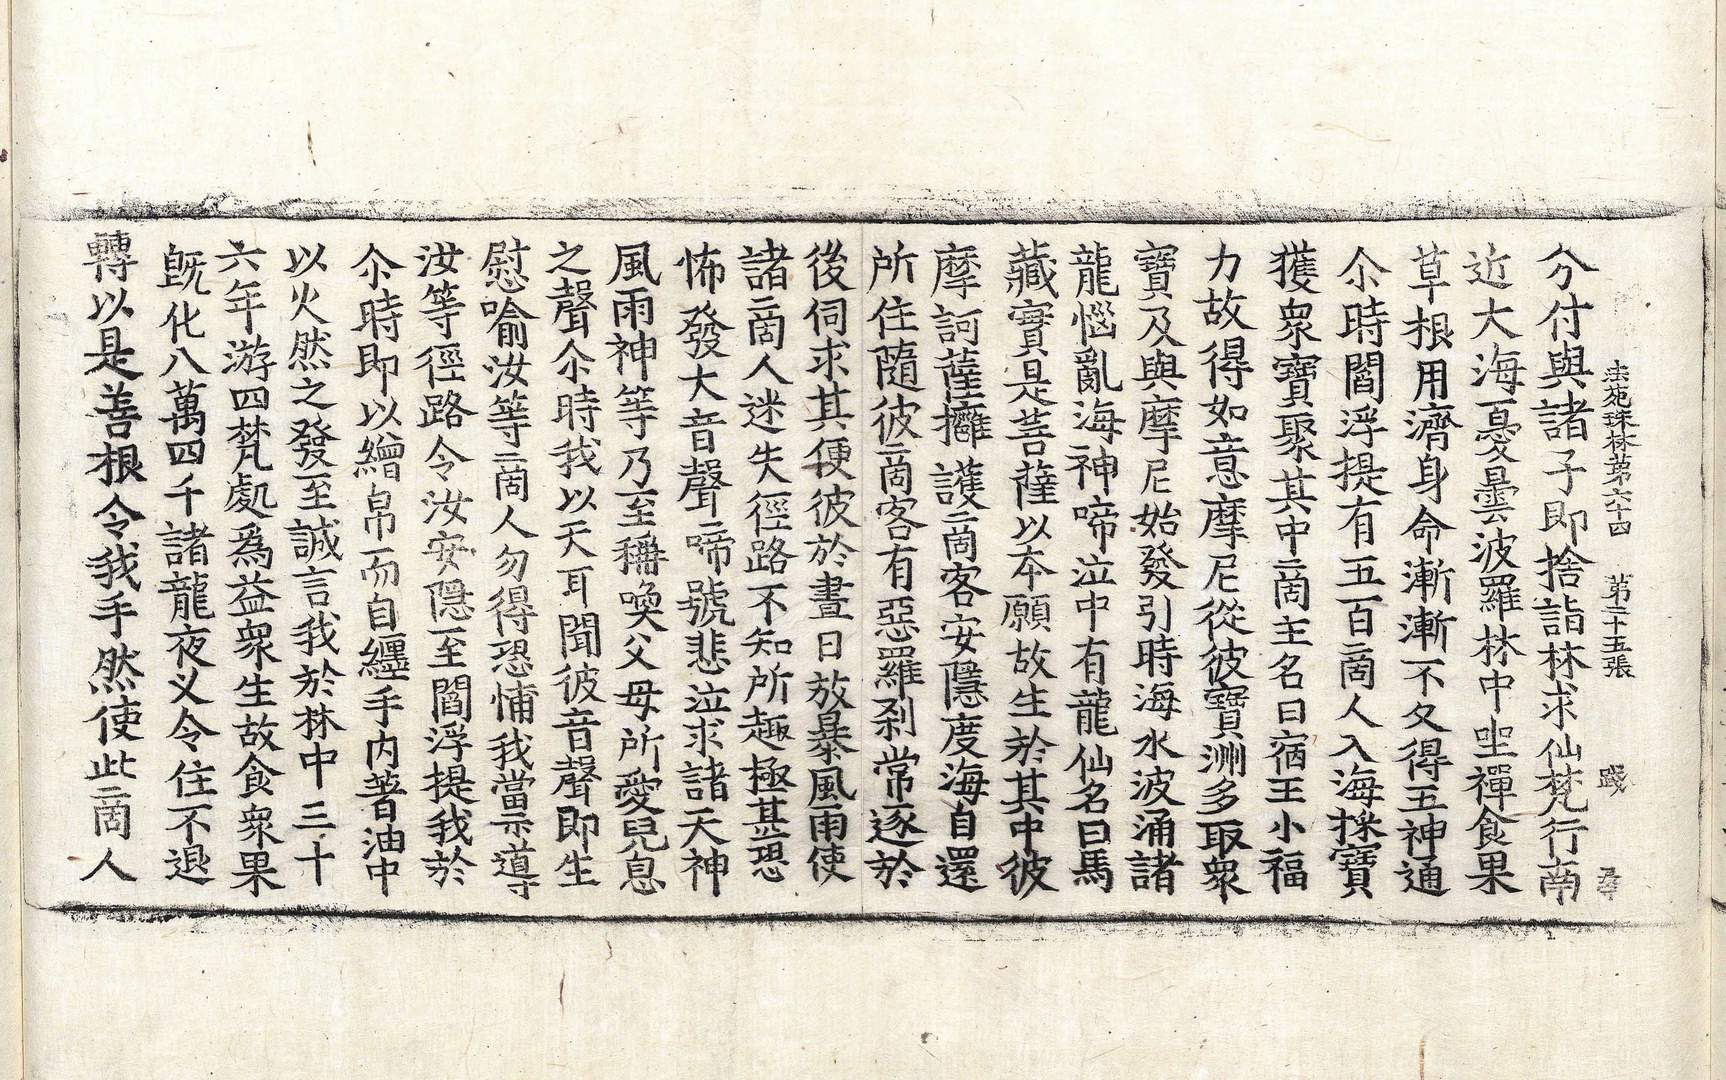 法苑珠林第六十四 第二十五張 踐
分付與諸子即捨詣林求仙梵行南
近大海憂曇波羅林中坐禪食果
草根用濟身命漸漸不久得五神通
尒時閻浮提有五百啇人入海採寶
獲衆寶聚其中啇主名曰宿王小福
力故得如意摩尼從彼寶洲多取衆
寶及與摩尼始發引時海水波涌諸
龍惱亂海神啼泣中有龍仙名曰馬
藏實是菩薩以本願故生於其中彼
摩訶薩擁護啇客安隱度海自還
所住隨彼啇客有惡羅剎常逐於
後伺求其便彼於晝日放暴風雨使
諸啇人迷失徑路不知所趣極甚恐
怖發大音聲啼號悲泣求諸天神
風雨神等乃至稱喚父母所愛兒息
之聲尒時我以天耳聞彼音聲即生
慰喻汝等啇人勿得恐怖我當示導
汝等徑路令汝安隱至閻浮提我於
尒時即以繒帛而自纏手內著油中
以火然之發至誠言我於林中三十
六年游四梵處爲益衆生故食衆果
旣化八萬四千諸龍夜义令住不退
轉以是善根令我手然使此啇人